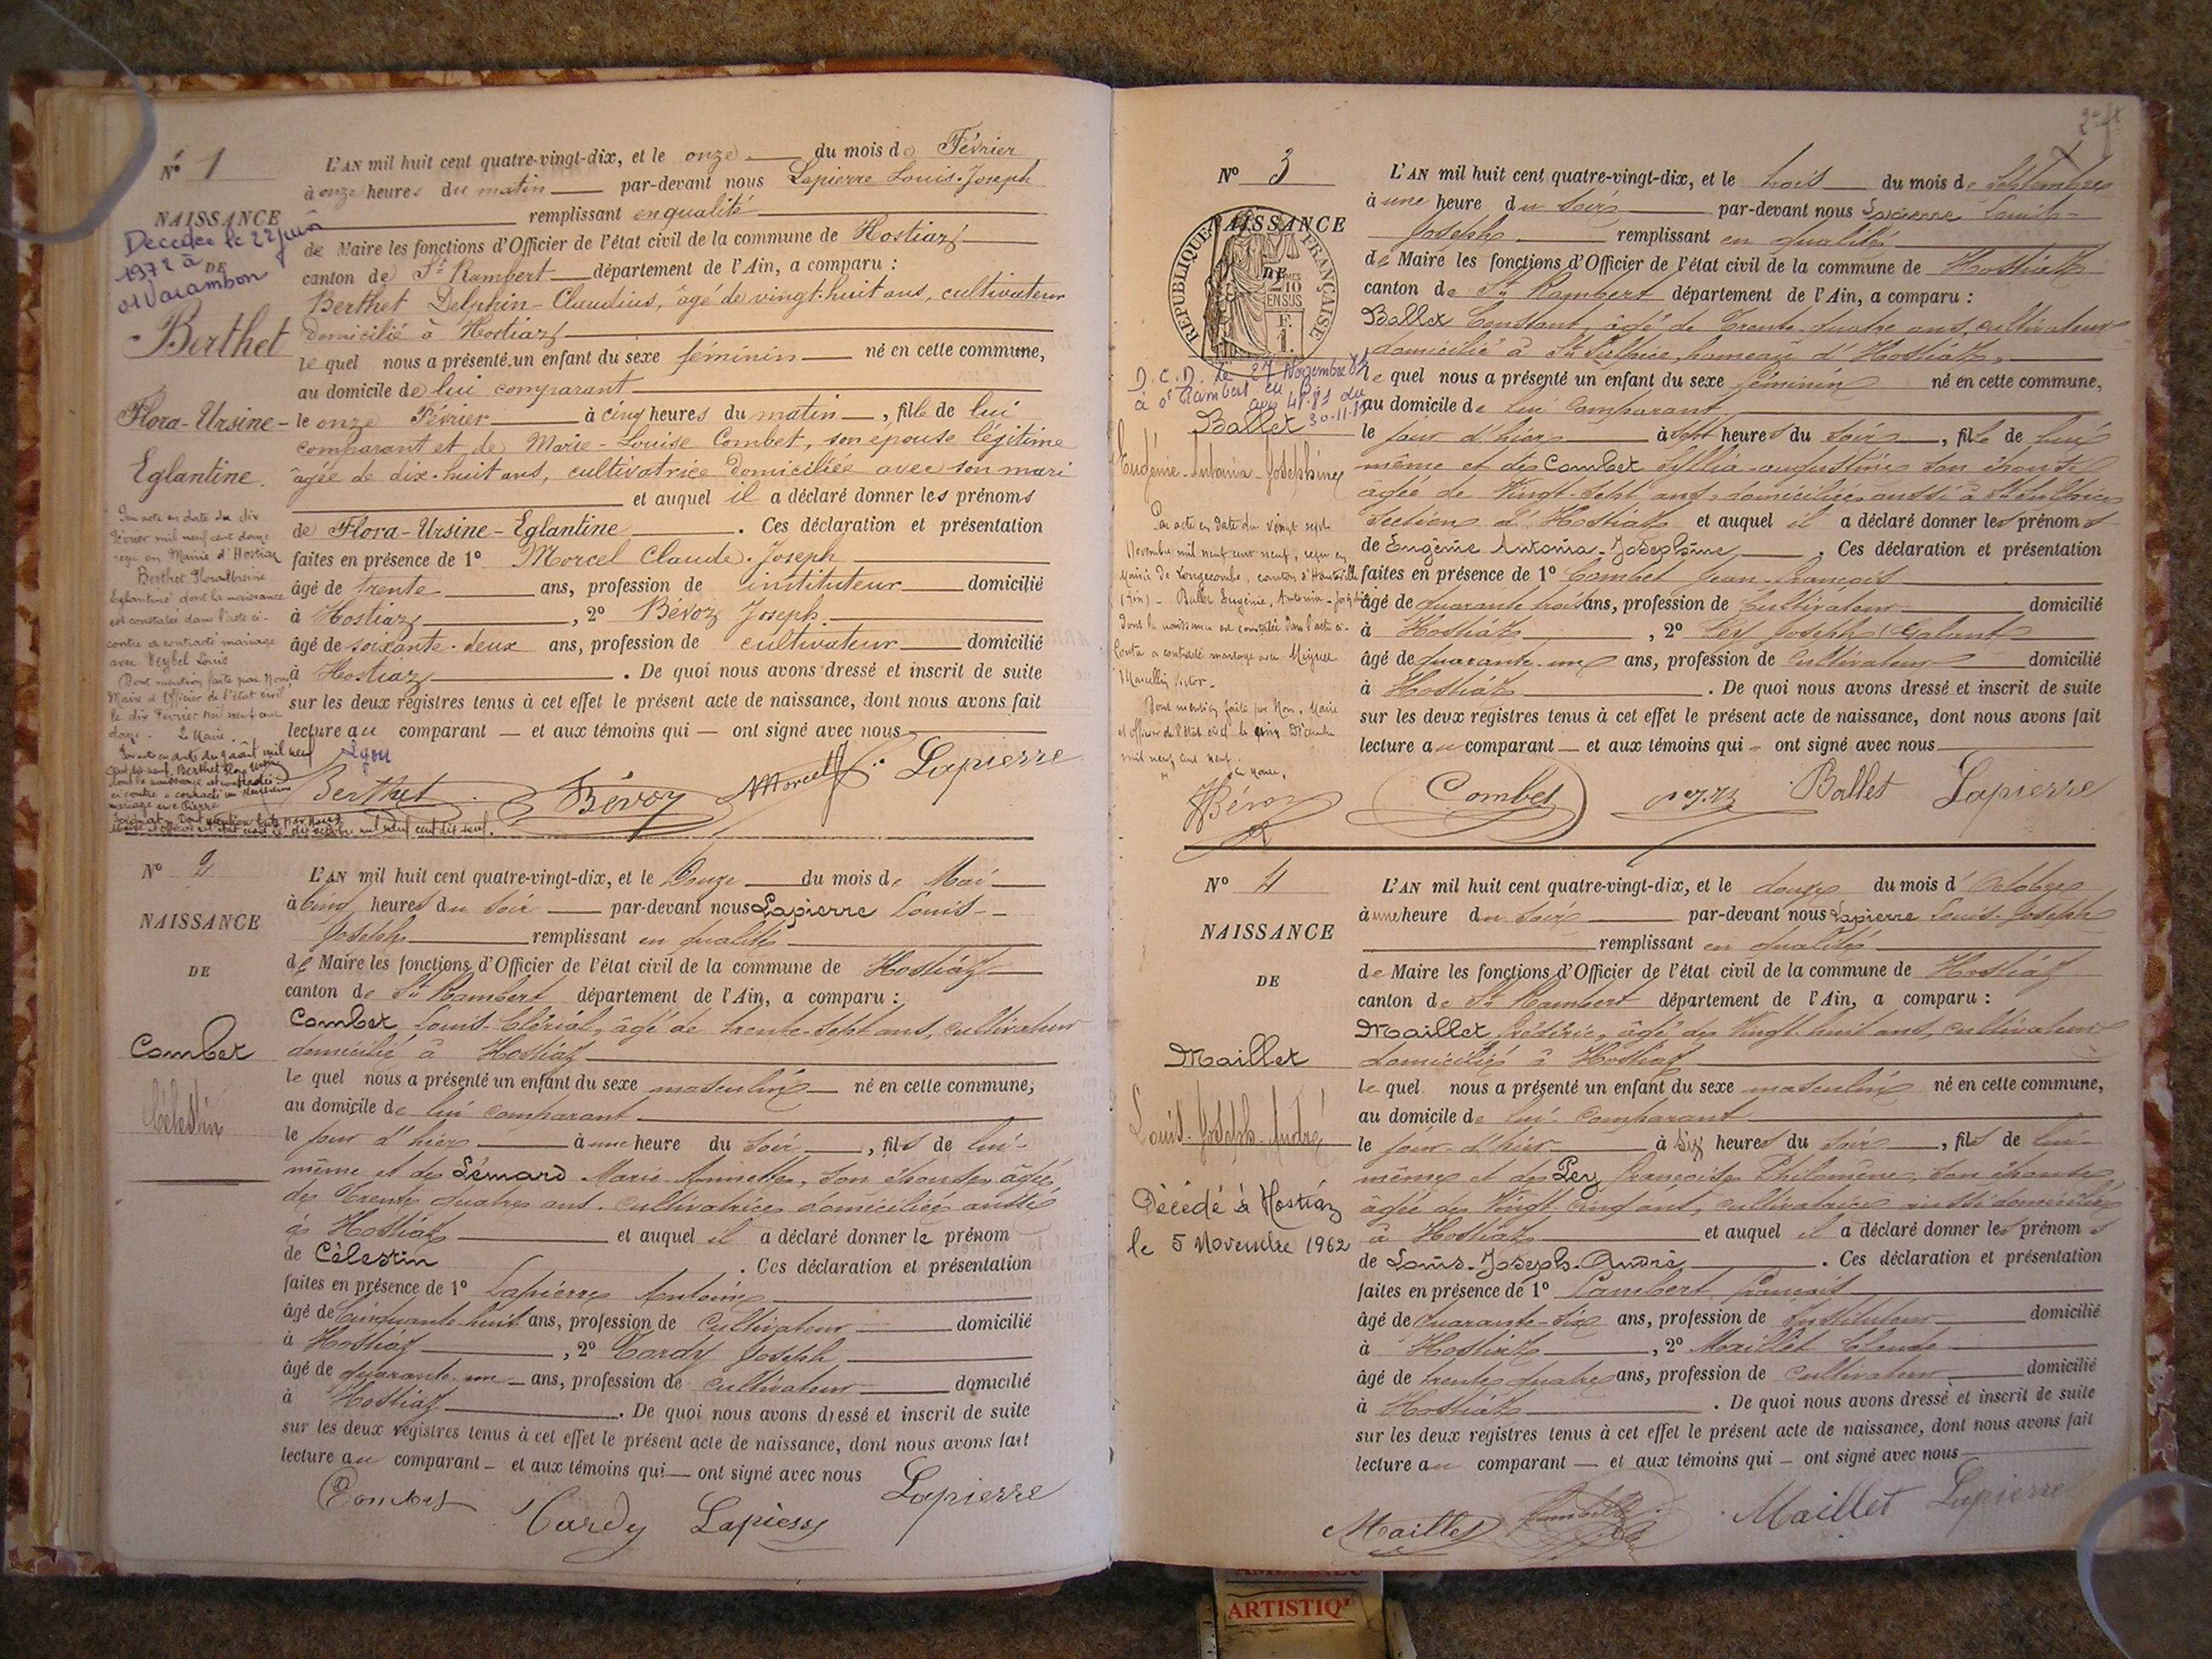 Nº 1
NAISSANCE
Décédée le 22 juin
1972 à
DE
01 Varambon
Berthet
Flora-Ursine-
Eglantine.
Par acte en date du dix
Février mil neuf cent douze
reçu en Mairie d'Hostiaz
Berthet Flora Ursine
Eglantine dont la naissance
est constatée dans l'acte ci-
contre a contracté mariage
avec Veybel Louis
Dont mention faite par Nous
Maire et Officier de l'état civil
le dix Février mil neuf cent
douze - Le Maire.
L'AN mil huit cent quatre-vingt-dix, et le onze du mois de Février
à onze heures du matin par-devant nous Lapierre Louis-Joseph
remplissant en qualité
de Maire les fonctions d'Officier de l'état civil de la commune de Hostiaz
canton de St Rambert département de l'Ain, a comparu :
Berthet Delphin-Claudius, âgé de vingt-huit ans, cultivateur
domicilié à Hostiaz
le quel nous a présenté un enfant du sexe féminin né en cette commune,
au domicile de lui comparant
le onze Février à cinq heures du matin, fille de lui
comparant et de Marie-Louise Combet, son épouse légitime
âgée de dix-huit ans, cultivatrice domiciliée avec son mari
et auquel il a déclaré donner les prénoms
de Flora-Ursine-Eglantine. Ces déclaration et présentation
faites en présence de 1º Morcel Claude-Joseph
âgé de trente ans, profession de instituteur domicilié
à Hostiaz, 2º Bévoz Joseph
âgé de soixante-deux ans, profession de cultivateur domicilié
à Hostiaz. De quoi nous avons dressé et inscrit de suite
sur les deux registres tenus à cet effet le présent acte de naissance, dont nous avons fait
lecture au comparant — et aux témoins qui — ont signé avec nous
Berthet Bévoz Morcel Lapierre
Nº 2
NAISSANCE
DE
Combet
Célestin
L'AN mil huit cent quatre-vingt-dix, et le Douze du mois de Mai
à cinq heures du soir par-devant nous Lapierre Louis-
Joseph remplissant en qualité
de Maire les fonctions d'Officier de l'état civil de la commune de Hostiaz
canton de St Rambert département de l'Ain, a comparu :
Combet Louis-Clérial, âgé de trente-sept ans, cultivateur
domicilié à Hostiaz
le quel nous a présenté un enfant du sexe masculin né en cette commune,
au domicile de lui comparant
le jour d'hier à une heure du soir, fils de lui-
même et de Lémard Marie Annette, son épouse, âgée
de trente quatre ans, cultivatrice domiciliée aussi
à Hostiaz et auquel il a déclaré donner le prénom
de Célestin. Ces déclaration et présentation
faites en présence de 1º Lapierre Antoine
âgé de Cinquante huit ans, profession de Cultivateur domicilié
à Hostiaz, 2º Cardy Joseph
âgé de quarante-un ans, profession de cultivateur domicilié
à Hostiaz. De quoi nous avons dressé et inscrit de suite
sur les deux registres tenus à cet effet le présent acte de naissance, dont nous avons fait
lecture au comparant — et aux témoins qui — ont signé avec nous
Combet Cardy Lapierre Lapierre
Nº 3
NAISSANCE
DE
RÉPUBLIQUE FRANÇAISE
2/10 EN SUS
D.C.D. le 27 Novembre
à St Rambert en
Ballet
Eugénie-Antonia-Joséphine
Par acte en date du vingt sept
Novembre mil neuf cent neuf, reçu en
Mairie de Longecombe, canton d'Hauteville
(Ain) - Ballet Eugénie, Antonia-Joséphine
dont la naissance est constatée dans l'acte ci-
contre a contracté mariage avec Miguet
Marcellin Victor-
Dont mention faite par Nous, Maire
et officier de l'état civil le cinq Décembre
mil neuf cent neuf.
Le Maire,
L'AN mil huit cent quatre-vingt-dix, et le trois du mois de Septembre
à une heure du soir par-devant nous Lapierre Louis-
Joseph remplissant en qualité
de Maire les fonctions d'Officier de l'état civil de la commune de Hostiaz
canton de St Rambert département de l'Ain, a comparu :
Ballet Constant, âgé de Trente-quatre ans, cultivateur
domicilié à St Sulpice, hameau d'Hostiaz,
le quel nous a présenté un enfant du sexe féminin né en cette commune,
au domicile de lui comparant
le jour d'hier à sept heures du soir, fille de lui
même et de Combet Sylvia-augustine son épouse
âgée de Vingt-sept ans, domiciliée aussi à St Sulpice
section d'Hostiaz et auquel il a déclaré donner les prénoms
de Eugénie Antonia-Joséphine. Ces déclaration et présentation
faites en présence de 1º Combet Jean-François
âgé de quarante trois ans, profession de Cultivateur domicilié
à Hostiaz, 2º Pey Joseph (Galant)
âgé de quarante-un ans, profession de Cultivateur domicilié
à Hostiaz. De quoi nous avons dressé et inscrit de suite
sur les deux registres tenus à cet effet le présent acte de naissance, dont nous avons fait
lecture au comparant — et aux témoins qui — ont signé avec nous
Bévoz Combet Ballet Lapierre
Nº 4
NAISSANCE
DE
Maillet
Louis-Joseph-André
Décédé à Hostiaz
le 5 Novembre 1962
L'AN mil huit cent quatre-vingt-dix, et le douze du mois d'Octobre
à une heure du soir par-devant nous Lapierre Louis-Joseph
remplissant en qualité
de Maire les fonctions d'Officier de l'état civil de la commune de Hostiaz
canton de St Rambert département de l'Ain, a comparu :
Maillet Frédéric, âgé de Vingt-huit ans, cultivateur
domicilié à Hostiaz
le quel nous a présenté un enfant du sexe masculin né en cette commune,
au domicile de lui-comparant
le jour-d'hier à six heures du soir, fils de lui-
même et de Pey Françoise Philomène, son épouse
âgée de Vingt-Cinq ans, cultivatrice aussi domiciliée
à Hostiaz et auquel il a déclaré donner les prénoms
de Louis-Joseph-André. Ces déclaration et présentation
faites en présence de 1º Lambert François
âgé de quarante-six ans, profession de Instituteur domicilié
à Hostiaz, 2º Maillet Claude
âgé de trente quatre ans, profession de Cultivateur domicilié
à Hostiaz. De quoi nous avons dressé et inscrit de suite
sur les deux registres tenus à cet effet le présent acte de naissance, dont nous avons fait
lecture au comparant — et aux témoins qui — ont signé avec nous
Maillet Maillet Lapierre
ARTISTIQ